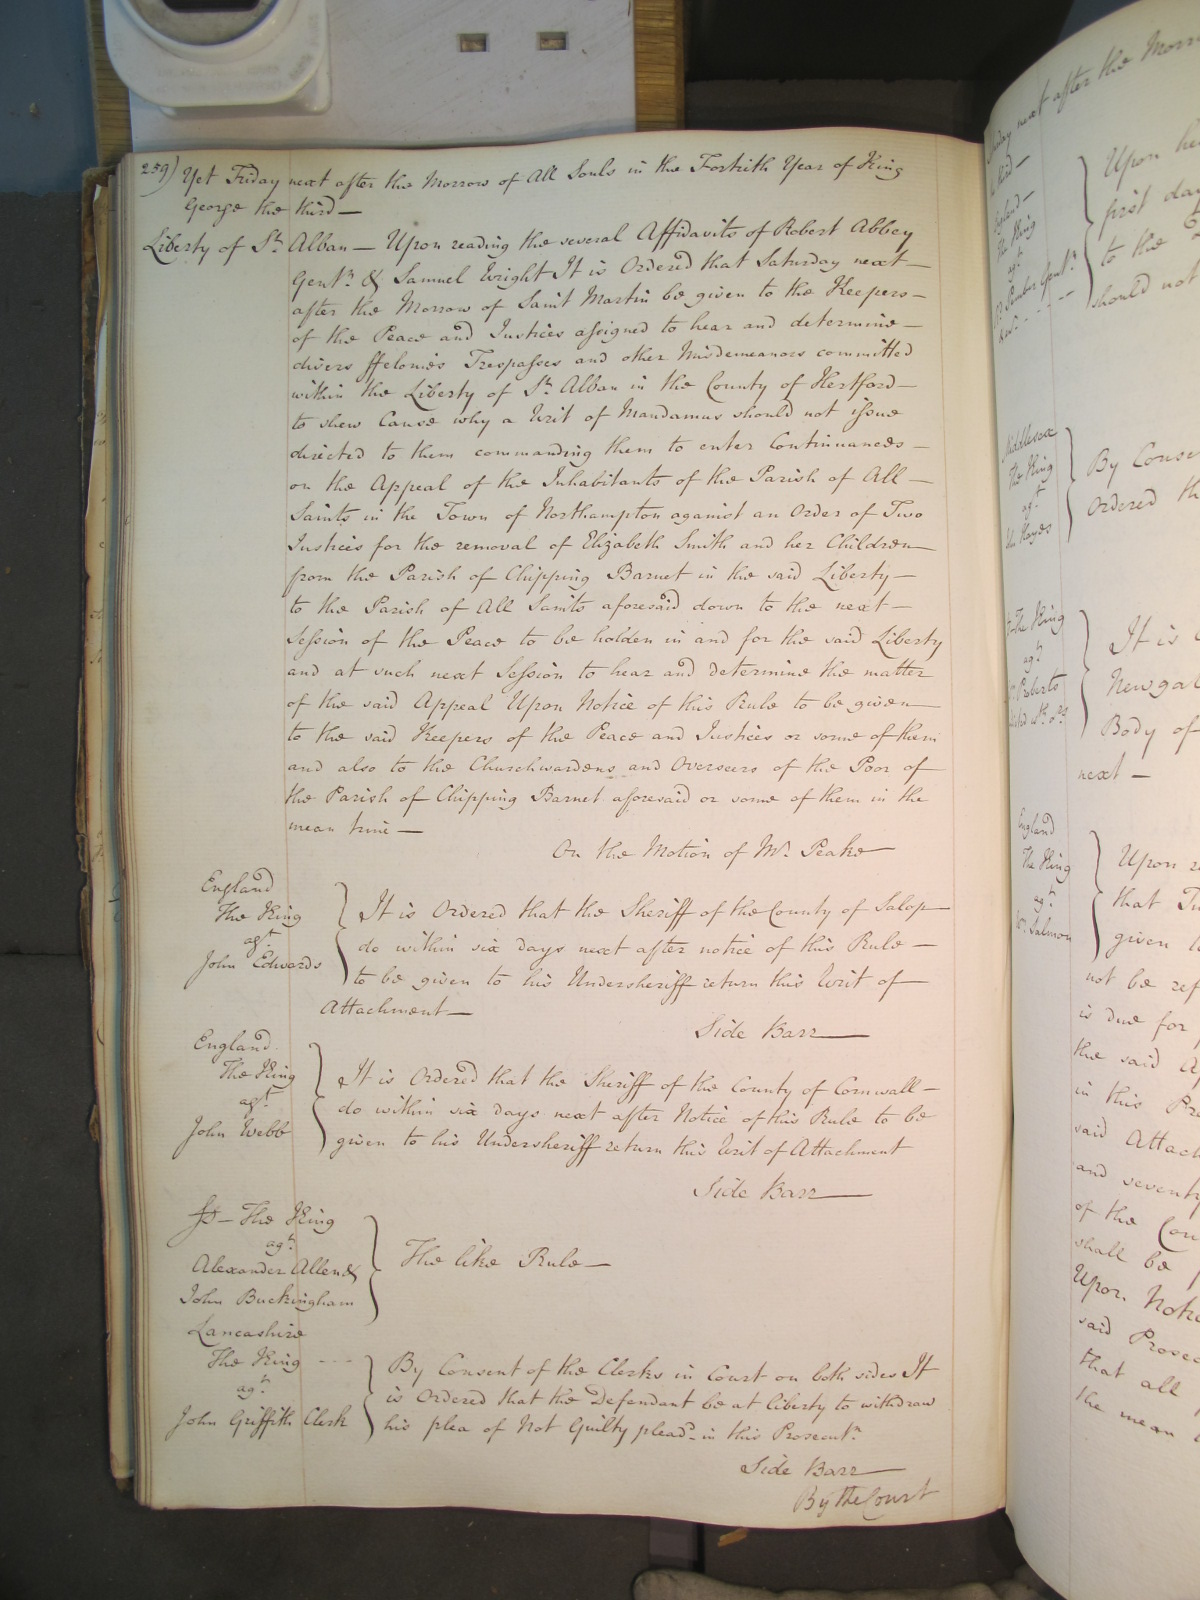 259) Yet Friday next after the Morrow of All Souls in the Fortieth Year of King
George the third —
Liberty of St. Alban — Upon reading the several Affidavits of Robert Abbey
Gentn. & Samuel Wright It is Ordered that Saturday next —
after the Morrow of Saint Martin be given to the Keepers —
of the Peace and Justices assigned to hear and determine —
divers ffelonies Trespasses and other Misdemeanors committed
within the Liberty of St. Alban in the County of Hertford —
to shew Cause why a Writ of Mandamus should not issue
directed to them commanding them to enter Continuances —
on the Appeal of the Inhabitants of the Parish of All —
Saints in the Town of Northampton against an Order of Two
Justices for the removal of Elizabeth Smith and her Children —
from the Parish of Chipping Barnet in the said Liberty —
to the Parish of All Saints aforesaid down to the next —
Session of the Peace to be holden in and for the said Liberty
and at such next Session to hear and determine the matter
of the said Appeal Upon Notice of this Rule to be given —
to the said Keepers of the Peace and Justices or some of them
and also to the Churchwardens and Overseers of the Poor of
the Parish of Chipping Barnet aforesaid or some of them in the
mean time —
On the Motion of Mr. Peake —
England
The King
agt.
John Edwards
It is Ordered that the Sheriff of the County of Salop —
do within six days next after notice of this Rule —
to be given to his Undersheriff return this Writ of —
Attachment —
Side Barr —
England
The King
agt.
John Webb
It is Ordered that the Sheriff of the County of Cornwall —
do within six days next after Notice of this Rule to be
given to his Undersheriff return this Writ of Attachment
Side Barr —
The King
agt.
Alexander Allen &
John Buckingham
The like Rule —
Lancashire
The King - - -
agt.
John Griffith Clerk
By Consent of the Clerks in Court on both sides It
is Ordered that the Defendant be at liberty to withdraw
his plea of Not Guilty plead. in this Prosecutn.
Side Barr —
By the Court
next after the
The King
Upon
first
to the
should not
Middlesex
The King
agt.
Hayes
By
Ordered
The King
agt.
Roberts
It is
Body of
next —
England
The King
agt.
Salmon
Upon
that
given
not be
is due for
the said
in this
said
and
of the
shall be
Upon
said
that all
the mean